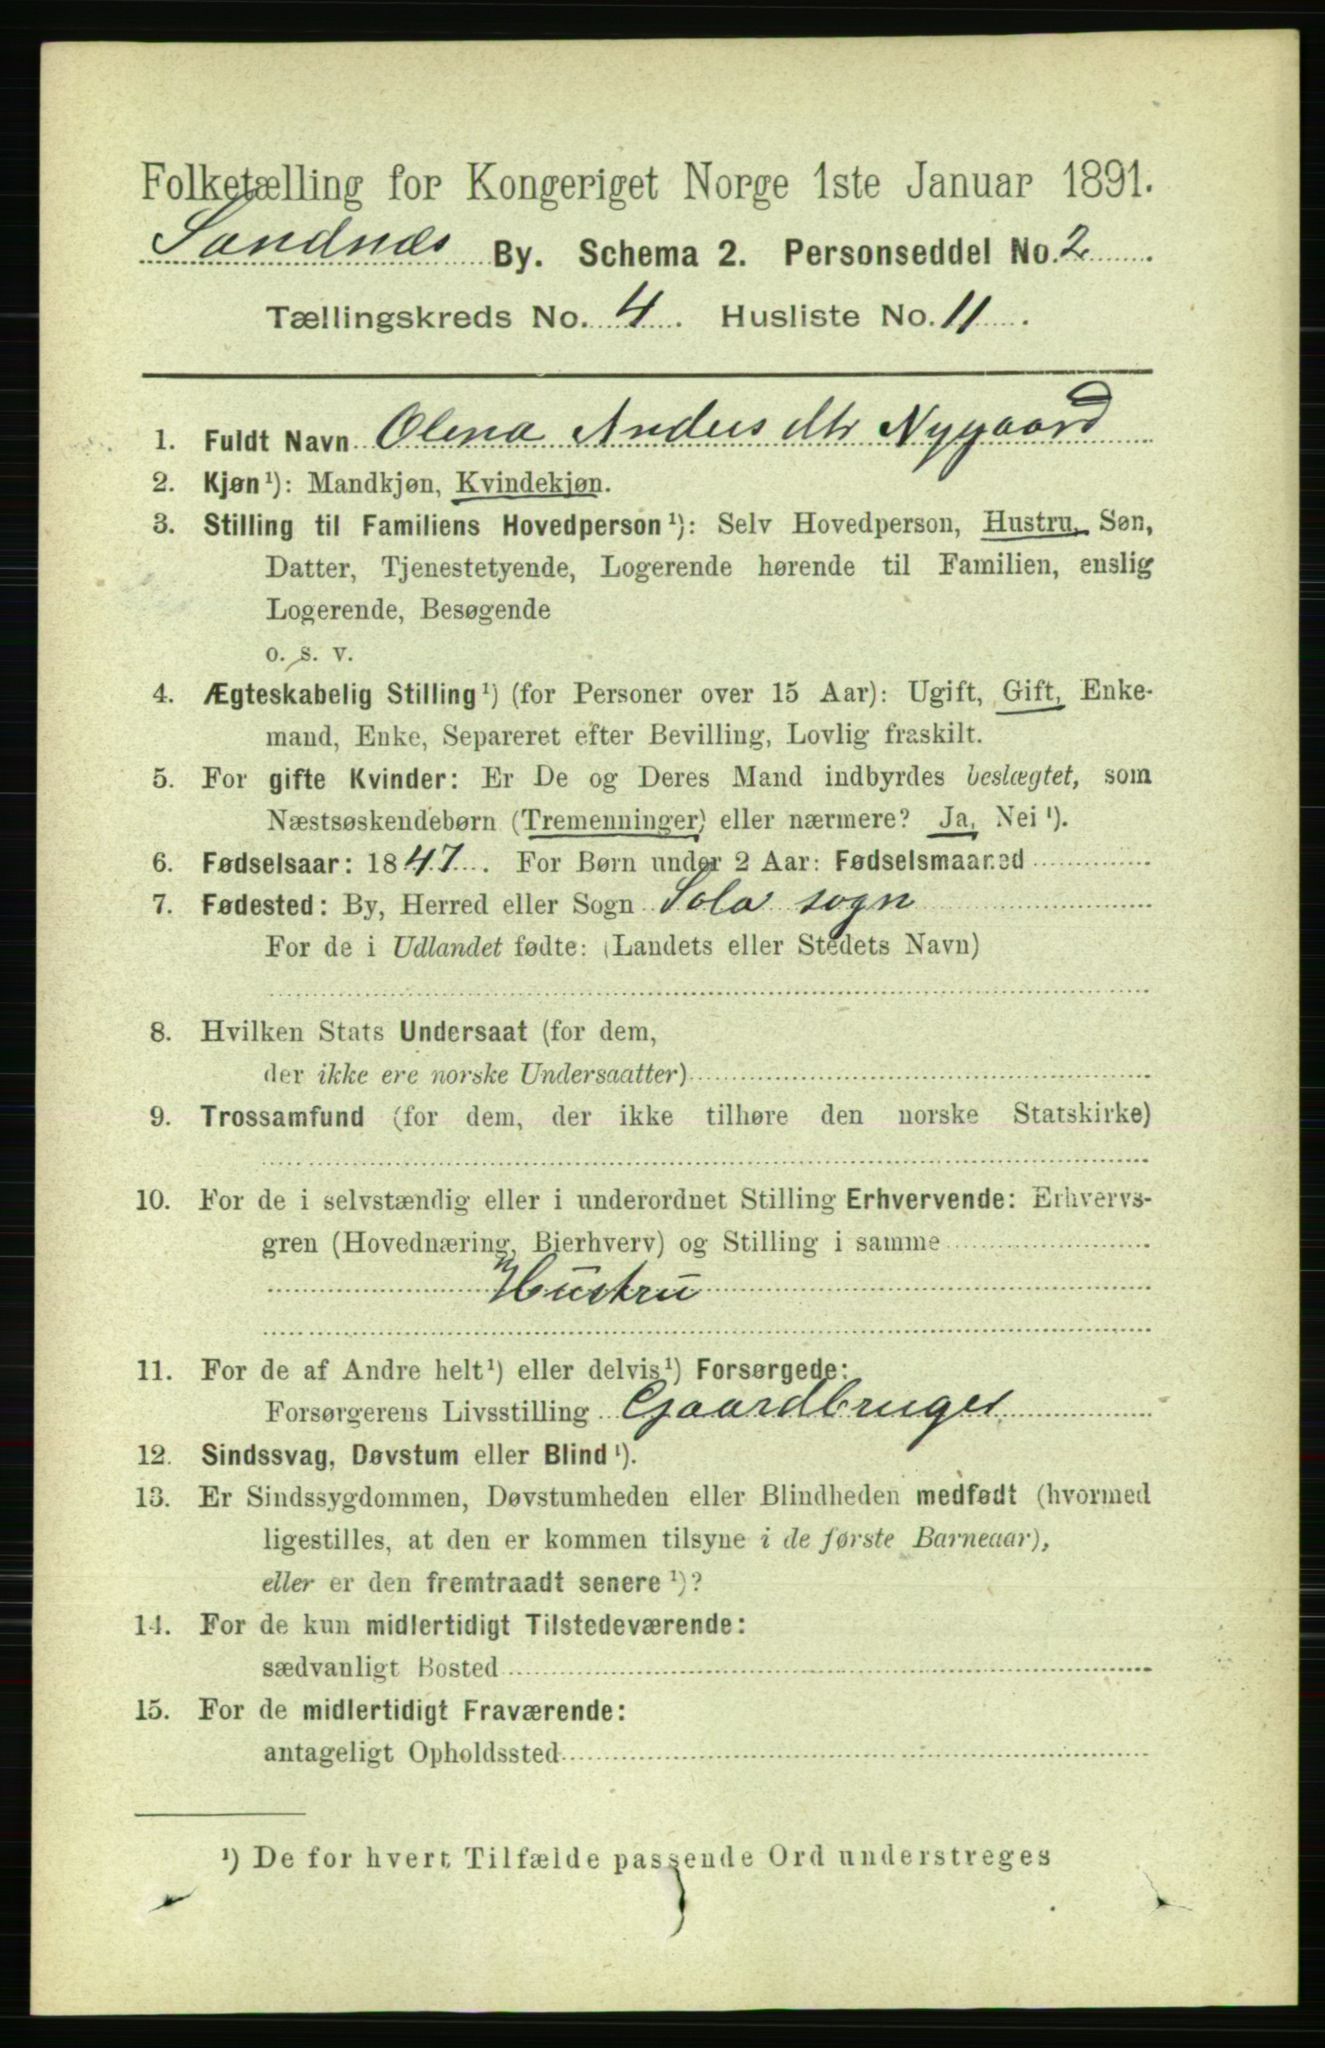 Folketælling for Kongeriget Norge 1ste Januar 1891.
Sandnæs By. Schema 2. Personseddel No. 2
Tællingskreds No. 4. Husliste No. 11.
1. Fuldt Navn Olena Andersdtr Nygaard
2. Kjøn¹): Mandkjøn, Kvindekjøn.
3. Stilling til Familiens Hovedperson¹): Selv Hovedperson, Hustru, Søn,
Datter, Tjenestetyende, Logerende hørende til Familien, enslig
Logerende, Besøgende
o. s. v.
4. Ægteskabelig Stilling¹) (for Personer over 15 Aar): Ugift, Gift, Enke-
mand, Enke, Separeret efter Bevilling, Lovlig fraskilt.
5. For gifte Kvinder: Er De og Deres Mand indbyrdes beslægtet, som
Næstsøskendebørn (Tremenninger) eller nærmere? Ja, Nei¹).
6. Fødselsaar: 1847. For Børn under 2 Aar: Fødselsmaaned
7. Fødested: By, Herred eller Sogn Sola sogn
For de i Udlandet fødte: (Landets eller Stedets Navn)
8. Hvilken Stats Undersaat (for dem,
der ikke ere norske Undersaatter)
9. Trossamfund (for dem, der ikke tilhøre den norske Statskirke)
10. For de i selvstændig eller i underordnet Stilling Erhvervende: Erhvervs-
gren (Hovednæring, Bierhverv) og Stilling i samme
Hustru
11. For de af Andre helt¹) eller delvis¹) Forsørgede:
Forsørgerens Livsstilling Gaardbruger
12. Sindssvag, Døvstum eller Blind¹).
13. Er Sindssygdommen, Døvstumheden eller Blindheden medfødt (hvormed
ligestilles, at den er kommen tilsyne i de første Barneaar),
eller er den fremtraadt senere¹)?
14. For de kun midlertidigt Tilstedeværende:
sædvanligt Bosted
15. For de midlertidigt Fraværende:
antageligt Opholdssted
¹) De for hvert Tilfælde passende Ord understreges